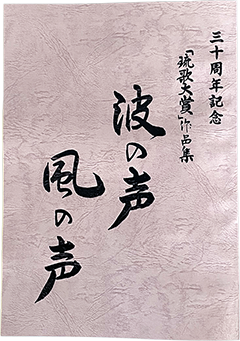 三十周年記念
「琉歌大賞」作品集
波の声
風の声